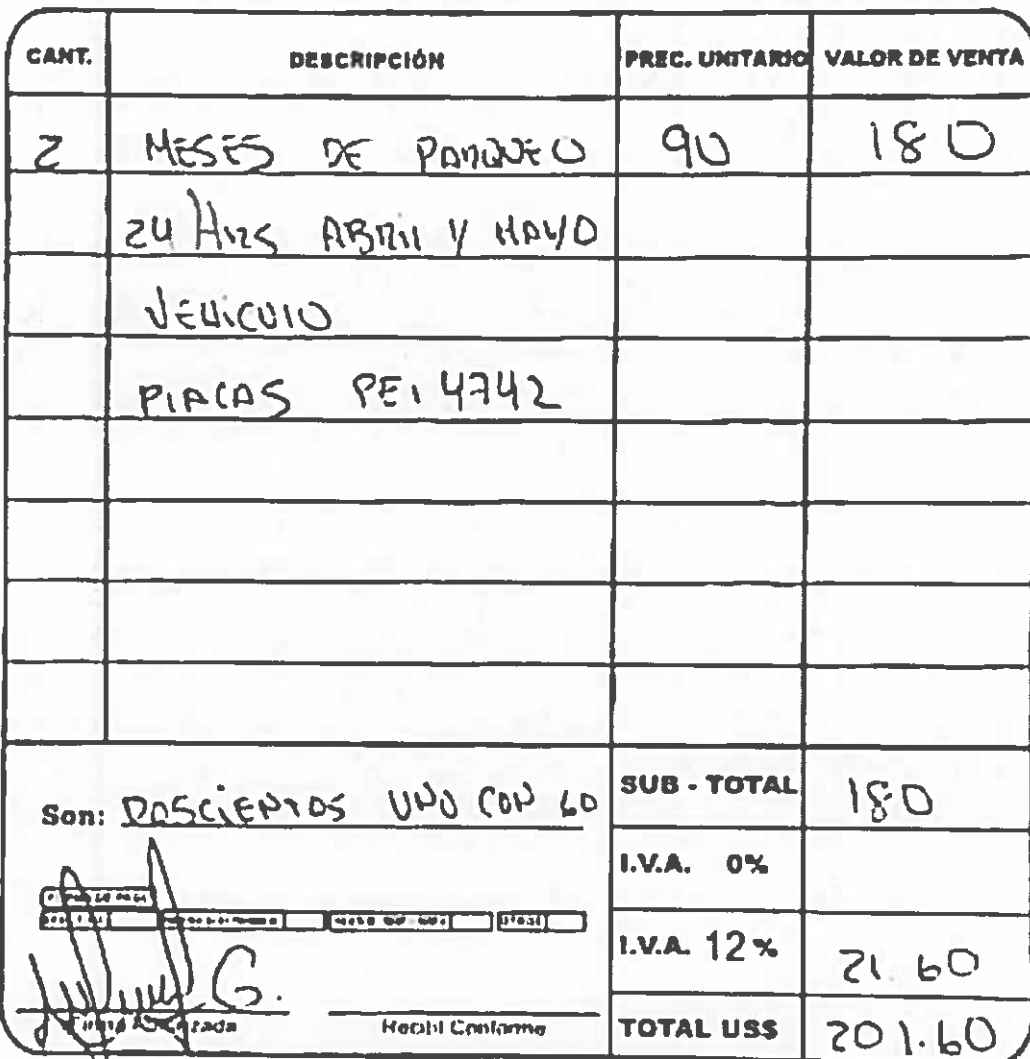 CANT. DESCRIPCIÓN PREC. UNITARIO VALOR DE VENTA
2 MESES DE PARQUEO 90 180
24 Hrs ABRIL Y MAYO
VEHICULO
PLACAS PEI 4742
Son: DOSCIENTOS UNO CON 60
SUB - TOTAL 180
I.V.A. 0%
I.V.A. 12% 21.60
Recibí Conforme
TOTAL US$ 201.60